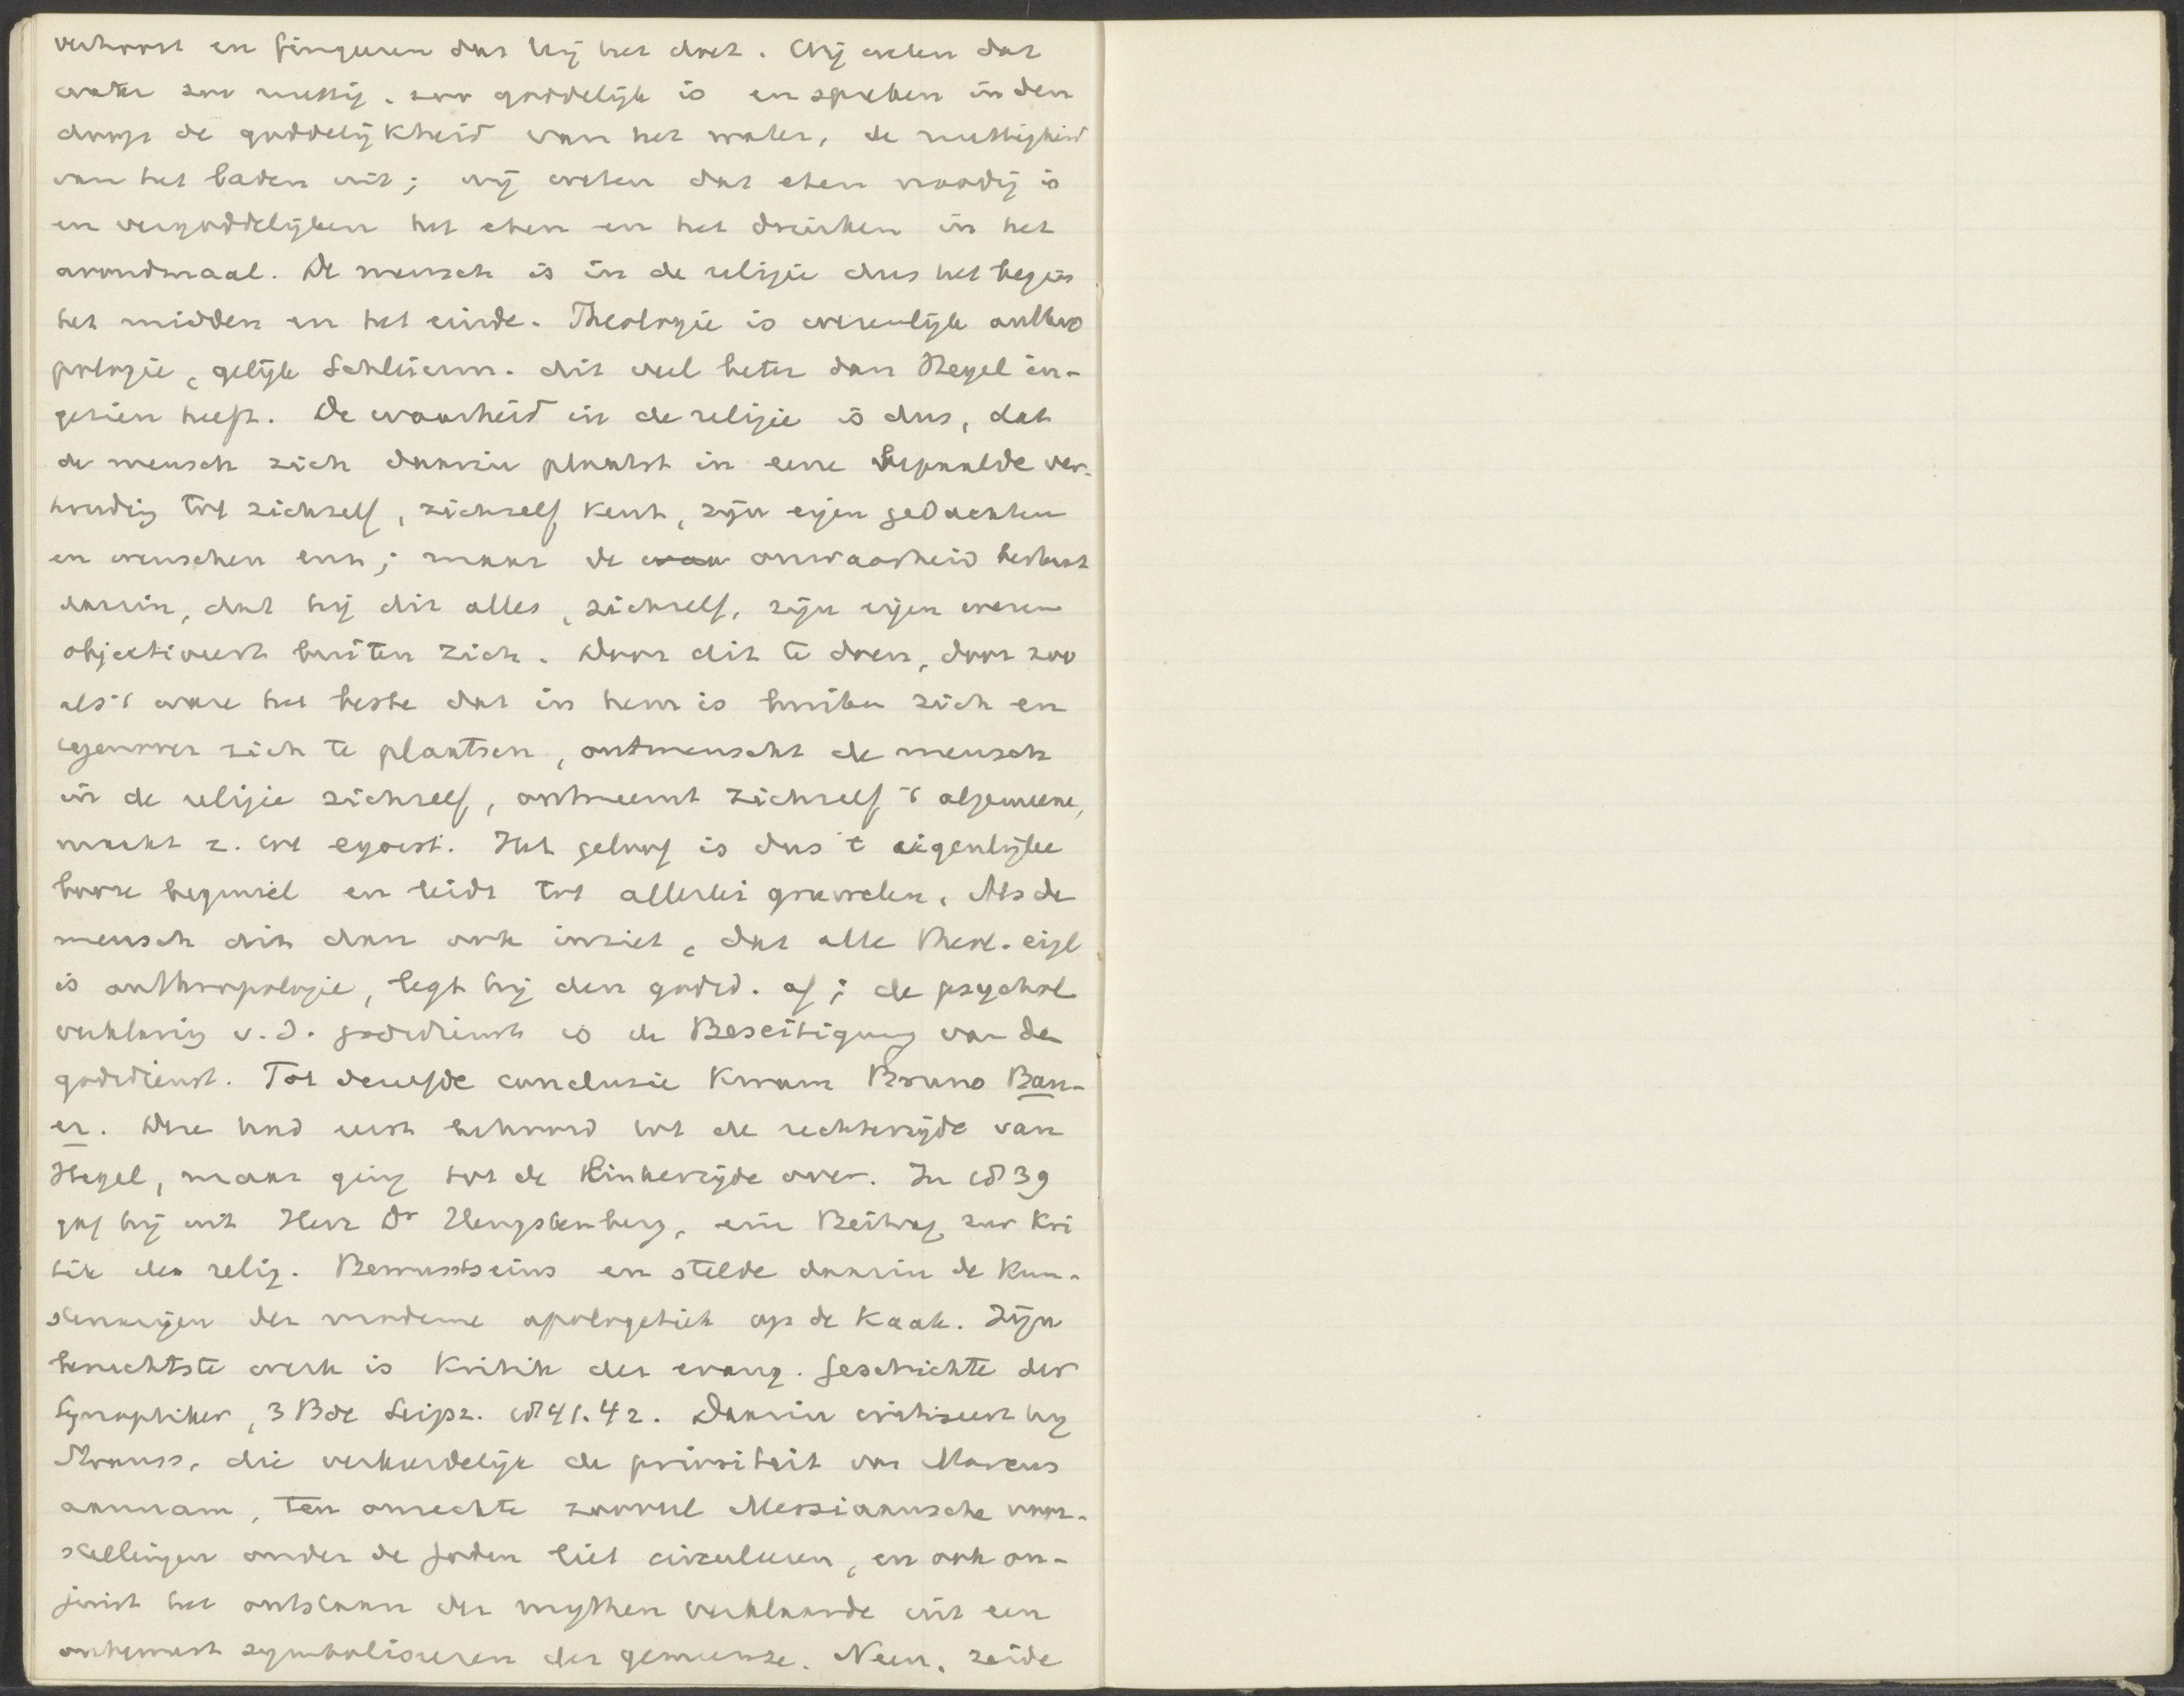 verhoort en fingeeren dat hij het doet. Wij weten dat
water zoo nuttig, zoo goddelijk is en spreken in den
doop de goddelijkheid van het water, de nuttigheid
van het baden uit; wij weten dat eten noodig is
en vergoddelijken het eten en het drinken in het
avondmaal. De mensch is in de religie dus het begin
het midden en het einde. Theologie is wezenlijk anthro
pologie, gelijk Schleierm. dit veel beter dan Hegel in-
gezien heeft. De waarheid in de religie is dus, dat
de mensch zich daarin plaatst in eene bepaalde ver-
houding tot zichzelf, zichzelf kent, zijn eigen gedachten
en wenschen enz; maar de waa onwaarheid bestaat
daarin, dat hij dit alles, zichzelf, zijn eigen wezen
objectiveert buiten zich. Door dit te doen, door zoo
als 't ware het beste dat in hem is buiten zich en
tegenover zich te plaatsen, ontmenscht de mensch
in de religie zichzelf, ontneemt zichzelf 't algemeene,
maakt z. tot egoist. Het geloof is dus 't eigenlijke
booze beginsel en leidt tot allerlei gruwelen. Als de
mensch dit dan ook inziet, dat alle theol. eigl
is anthropologie, legt hij den godsd. af; de psychol
verklaring v.d. godsdienst is de Beseitigung van den
godsdienst. Tot dezelfde conclusie kwam Bruno Bau-
er. Deze had eerst behoord tot de rechterzijde van
Hegel, maar ging tot de linkerzijde over. In 1839
gaf hij uit Herr Dr Hengstenberg, ein Beitrag zur Kri
tik des relig. Bewusstseins en stelde daarin de kun-
stenarijen der moderne apologetiek op de kaak. Zijn
beruchtste werk is Kritik der evang. Geschichte der
Synoptiker, 3 Bde Leipz. 1841.42. Daarin critiseert hij
Strauss, die verkeerdelijk de prioriteit van Marcus
aannam, ten onrechte zooveel Messiaansche voor-
stellingen onder de Joden liet circuleeren, en ook on-
juist het ontstaan der mythen verklaarde uit een
onbewust symboliseeren der gemeente. Neen, zeide